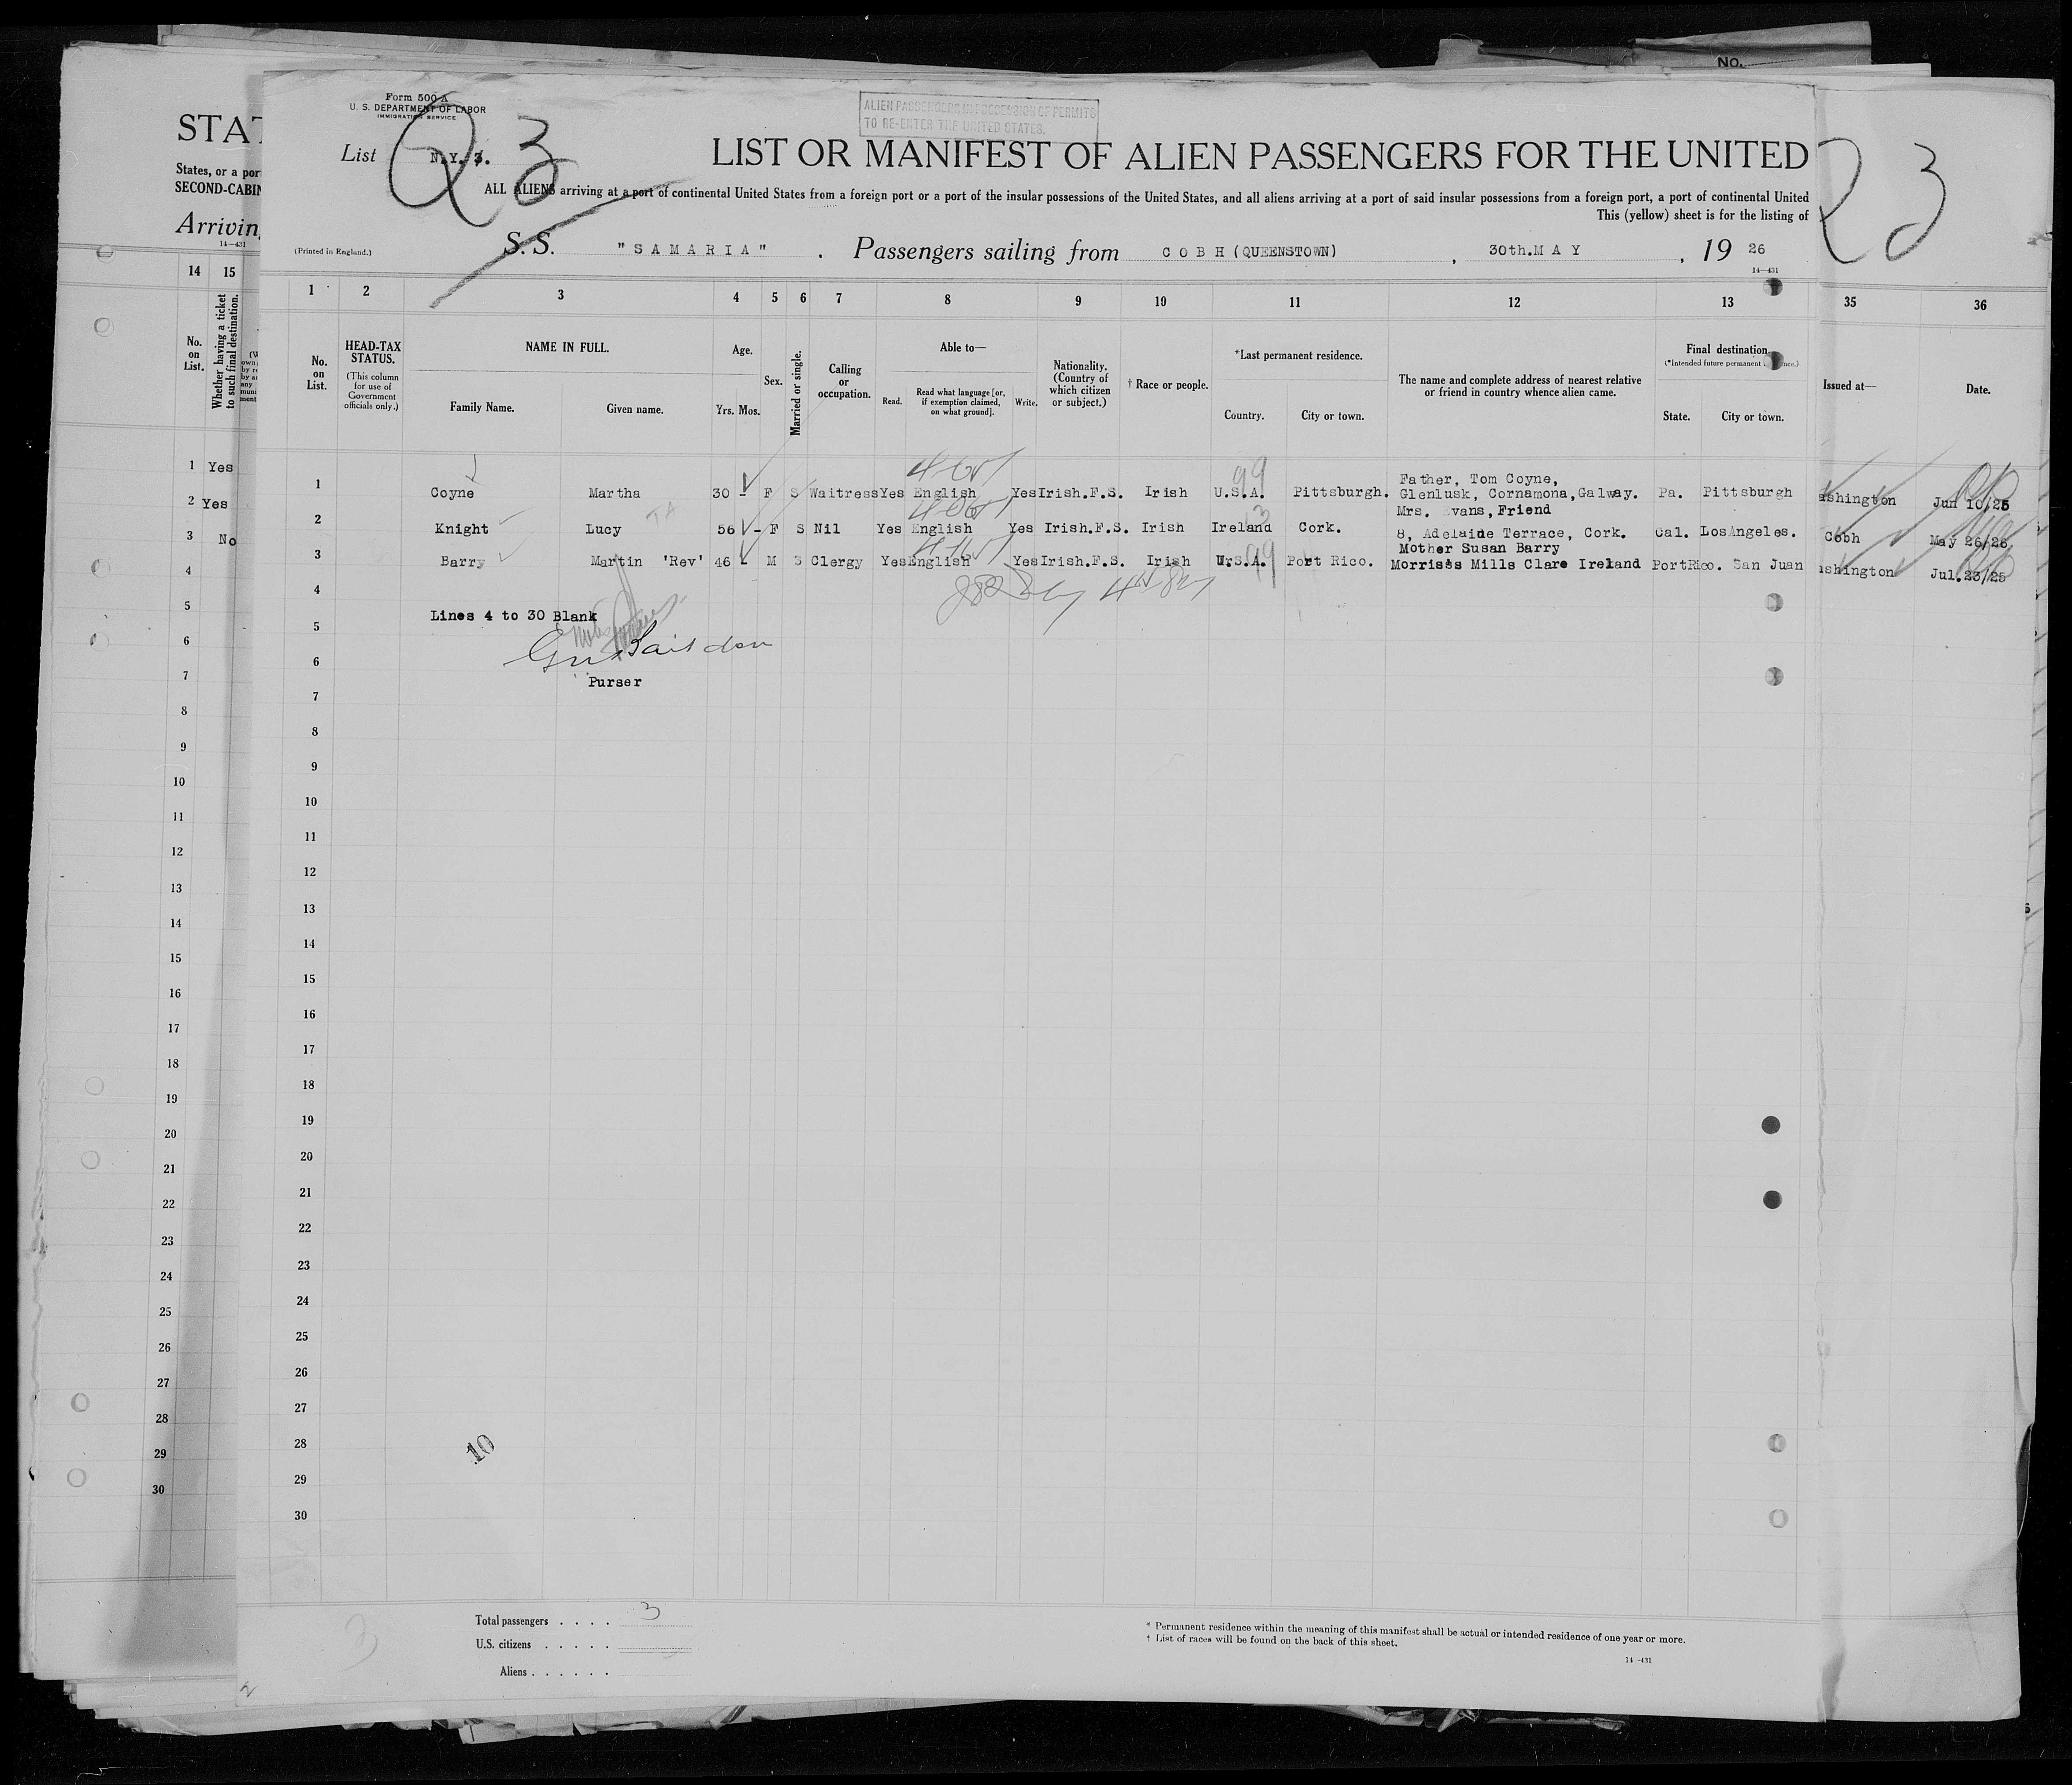 No.
Form 500-A
U. S. DEPARTMENT OF LABOR
IMMIGRATION SERVICE
ALIEN PASSENGERS IN POSSESSION OF PERMITS
TO RE-ENTER THE UNITED STATES.
List N.Y. 3.
Q 3
LIST OR MANIFEST OF ALIEN PASSENGERS FOR THE UNITED
23
STAT
States, or a por
SECOND-CABIN
Arrivin
14-431
ALL ALIENS arriving at a port of continental United States from a foreign port or a port of the insular possessions of the United States, and all aliens arriving at a port of said insular possessions from a foreign port, a port of continental United
This (yellow) sheet is for the listing of
(Printed in England.)
S. S. "SAMARIA" . Passengers sailing from COBH (QUEENSTOWN) , 30th. MAY , 19 26
14-431
14 15 1 2 3 4 5 6 7 8 9 10 11 12 13 35 36
No. on List.
Whether having a ticket to such final destination.
No. on List.
HEAD-TAX STATUS.
(This column for use of Government officials only.)
NAME IN FULL.
Family Name. Given name.
Age.
Yrs. Mos.
Sex.
Married or single.
Calling or occupation.
Able to—
Read. Read what language [or, if exemption claimed, on what ground]. Write.
Nationality. (Country of which citizen or subject.)
† Race or people.
*Last permanent residence.
Country. City or town.
The name and complete address of nearest relative or friend in country whence alien came.
Final destination
(*Intended future permanent
State. City or town.
Issued at— Date.
1 Yes
2 Yes
3 No
Father, Tom Coyne,
1 Coyne Martha 30 - F S Waitress Yes English Yes Irish.F.S. Irish U.S.A. Pittsburgh. Glenlusk, Cornamona, Galway. Pa. Pittsburgh ashington Jun 10/25
99
Mrs. Evans, Friend
2 Knight Lucy 56 - F S Nil Yes English Yes Irish.F.S. Irish Ireland Cork. 8, Adelaide Terrace, Cork. Cal. LosAngeles. Cobh May 26/26
Mother Susan Barry
3 Barry Martin 'Rev' 46 - M S Clergy Yes English Yes Irish.F.S. Irish U.S.A. Port Rico. Morrises Mills Clare Ireland PortRico. San Juan ashington Jul.23/25
99
Lines 4 to 30 Blank
Purser
4
5
6
7
8
9
10
11
12
13
14
15
16
17
18
19
20
21
22
23
24
25
26
27
28
29
30
4
5
6
7
8
9
10
11
12
13
14
15
16
17
18
19
20
21
22
23
24
25
26
27
28
29
30
10
3
Total passengers . . . . 3
U.S. citizens . . . . .
Aliens . . . . . .
* Permanent residence within the meaning of this manifest shall be actual or intended residence of one year or more.
† List of races will be found on the back of this sheet.
14-431